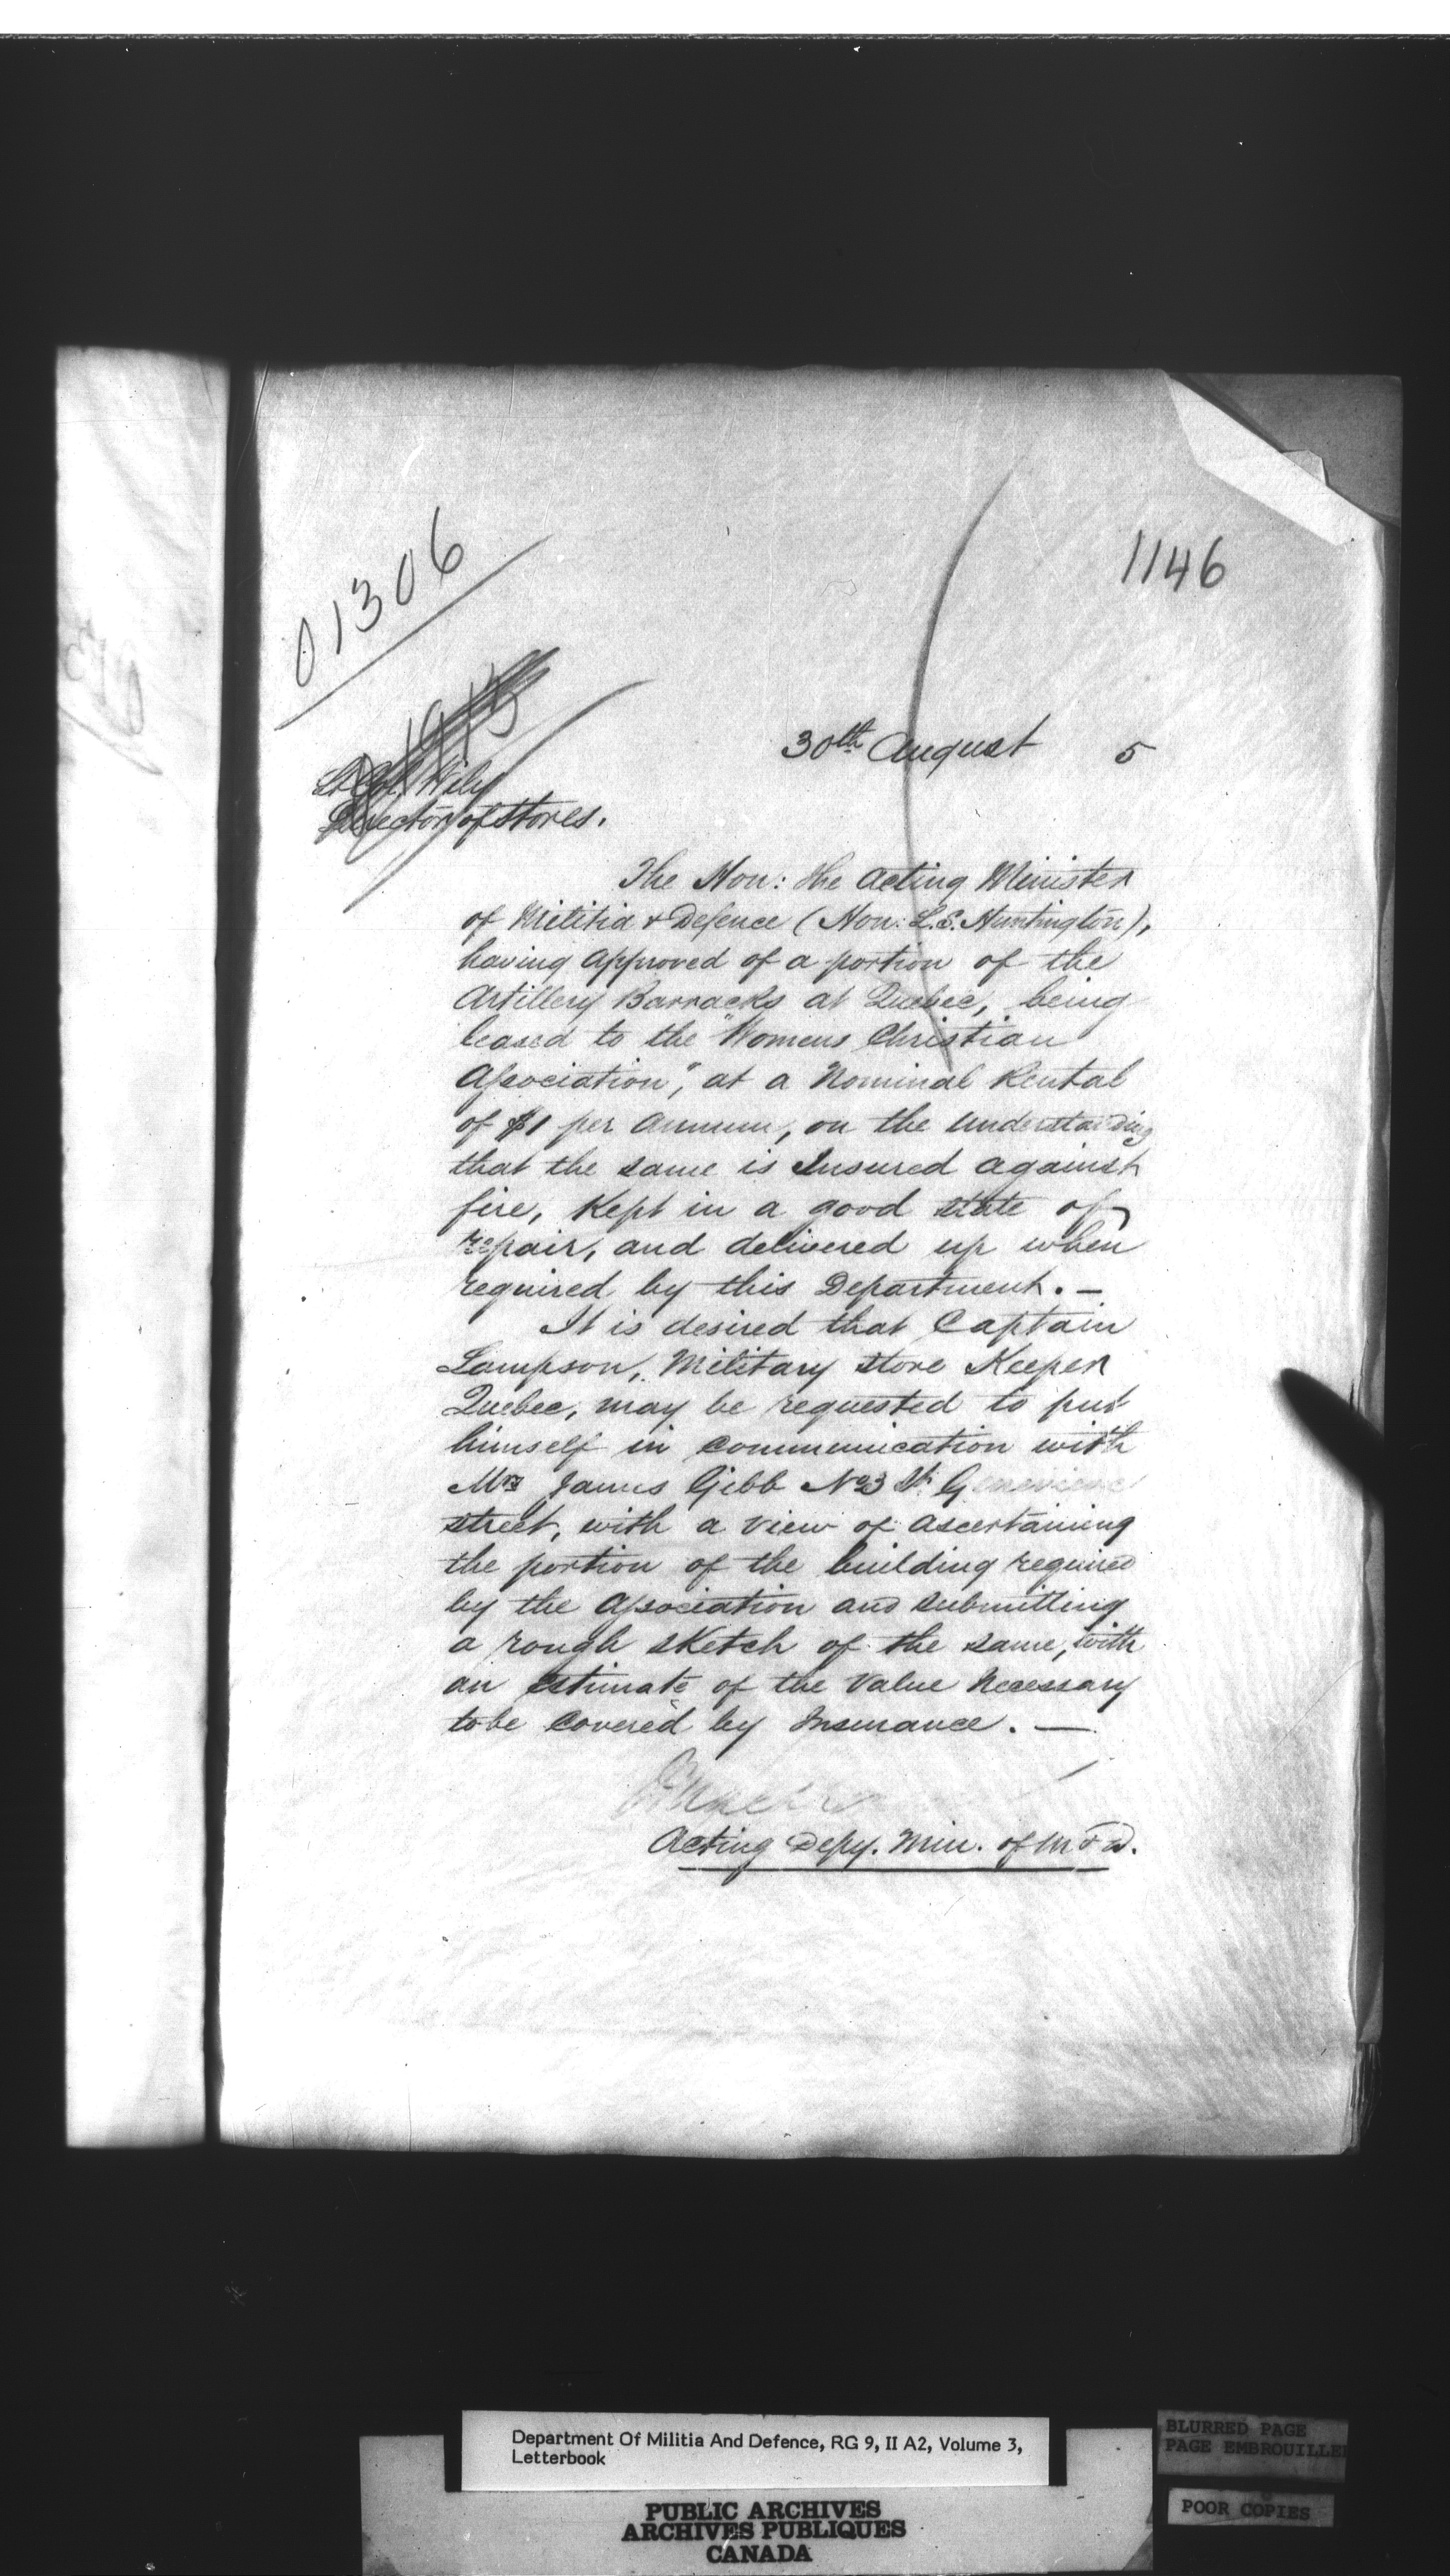 01306
1146
30th August 5
Lt Col. Wily
Director of Stores.
The Hon: the Acting Minister
of Militia & Defence (Hon: L.S. Huntington),
having approved of a portion of the
Artillery Barracks at Quebec, being
leased to the "Womens Christian
Association", at a Nominal Rental
of $1 per Annum, on the understanding
that the same is Insured against
fire, Kept in a good state of
repair, and delivered up when
required by this Department. —
It is desired that Captain
Lampson, Military Store Keeper
Quebec, may be requested to put
himself in communication with
Mrs James Gibb No 3 St. Genevieve
street, with a view of ascertaining
the portion of the building required
by the Association and submitting
a rough sketch of the same, with
an estimate of the Value Necessary
to be Covered by Insurance. —
Acting Depy. Min. of M & D.
Department Of Militia And Defence, RG 9, II A2, Volume 3,
Letterbook
BLURRED PAGE
PAGE EMBROUILLEE
POOR COPIES
PUBLIC ARCHIVES
ARCHIVES PUBLIQUES
CANADA